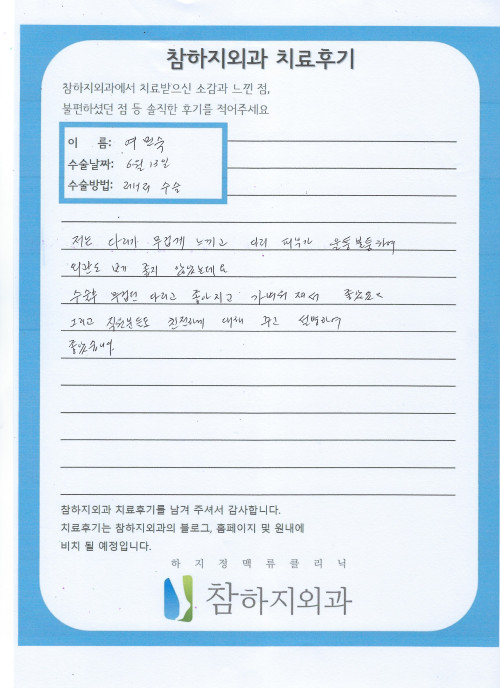 참하지외과 치료후기
참하지외과에서 치료받으신 소감과 느낀 점,
불편하셨던 점 등 솔직한 후기를 적어주세요
이 름: 여 민숙
수술날짜: 6월 13일
수술방법: 레이저 수술
저는 다리가 무겁게 느끼고 다리 피부가 울퉁불퉁하여
외관도 보기 좋지 않았는데요
수술후 무겁던 다리고 좋아지고 가벼워 져서 좋았요
그리고 직원분들도 친절하게 대해 주고 설명하여
좋았습니다.
참하지외과 치료후기를 남겨 주셔서 감사합니다.
치료후기는 참하지외과의 블로그, 홈페이지 및 원내에
비치 될 예정입니다.
하지정맥류클리닉
참하지외과